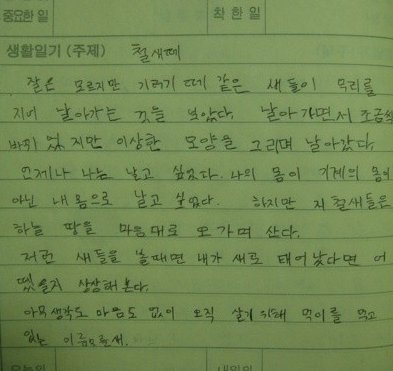 중요한 일 착 한 일
생활일기 (주제) 철새떼
잘은 모르지만 기러기 떼 같은 새들이 무리를
지어 날아가는 것을 보았다. 날아가면서 조금씩
바뀌 었지만 이상한 모양을 그리며 날아갔다.
언제나 나는 날고 싶었다. 나의 몸이 기계의 몸이
아닌 내 몸으로 날고 싶었다. 하지만 저 철새들은
하늘 땅을 마음대로 오가며 산다.
저런 새들을 볼때면 내가 새로 태어났다면 어
땠을지 상상해 본다.
아무생각도 마음도 없이 오직 살기 위해 먹이를 먹고
있는 이름모를새.
오늘의 내일의